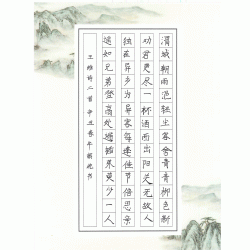 渭城朝雨浥轻尘客舍青青柳色新
劝君更尽一杯酒西出阳关无故人
独在异乡为异客每逢佳节倍思亲
遥知兄弟登高处遍插茱萸少一人
王维诗二首 辛丑春书